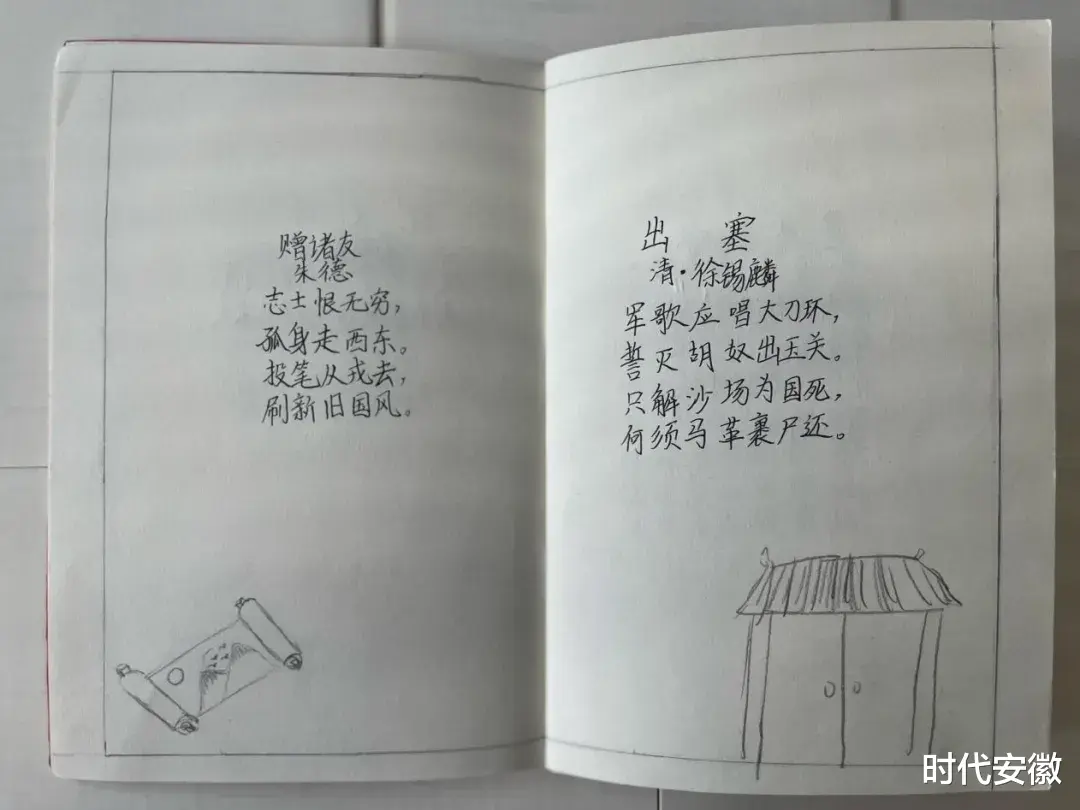 赠诸友
朱德
志士恨无穷，
孤身走西东。
投笔从戎去，
刷新旧国风。
出塞
清·徐锡麟
军歌应唱大刀环，
誓灭胡奴出玉关。
只解沙场为国死，
何须马革裹尸还。
时代安徽